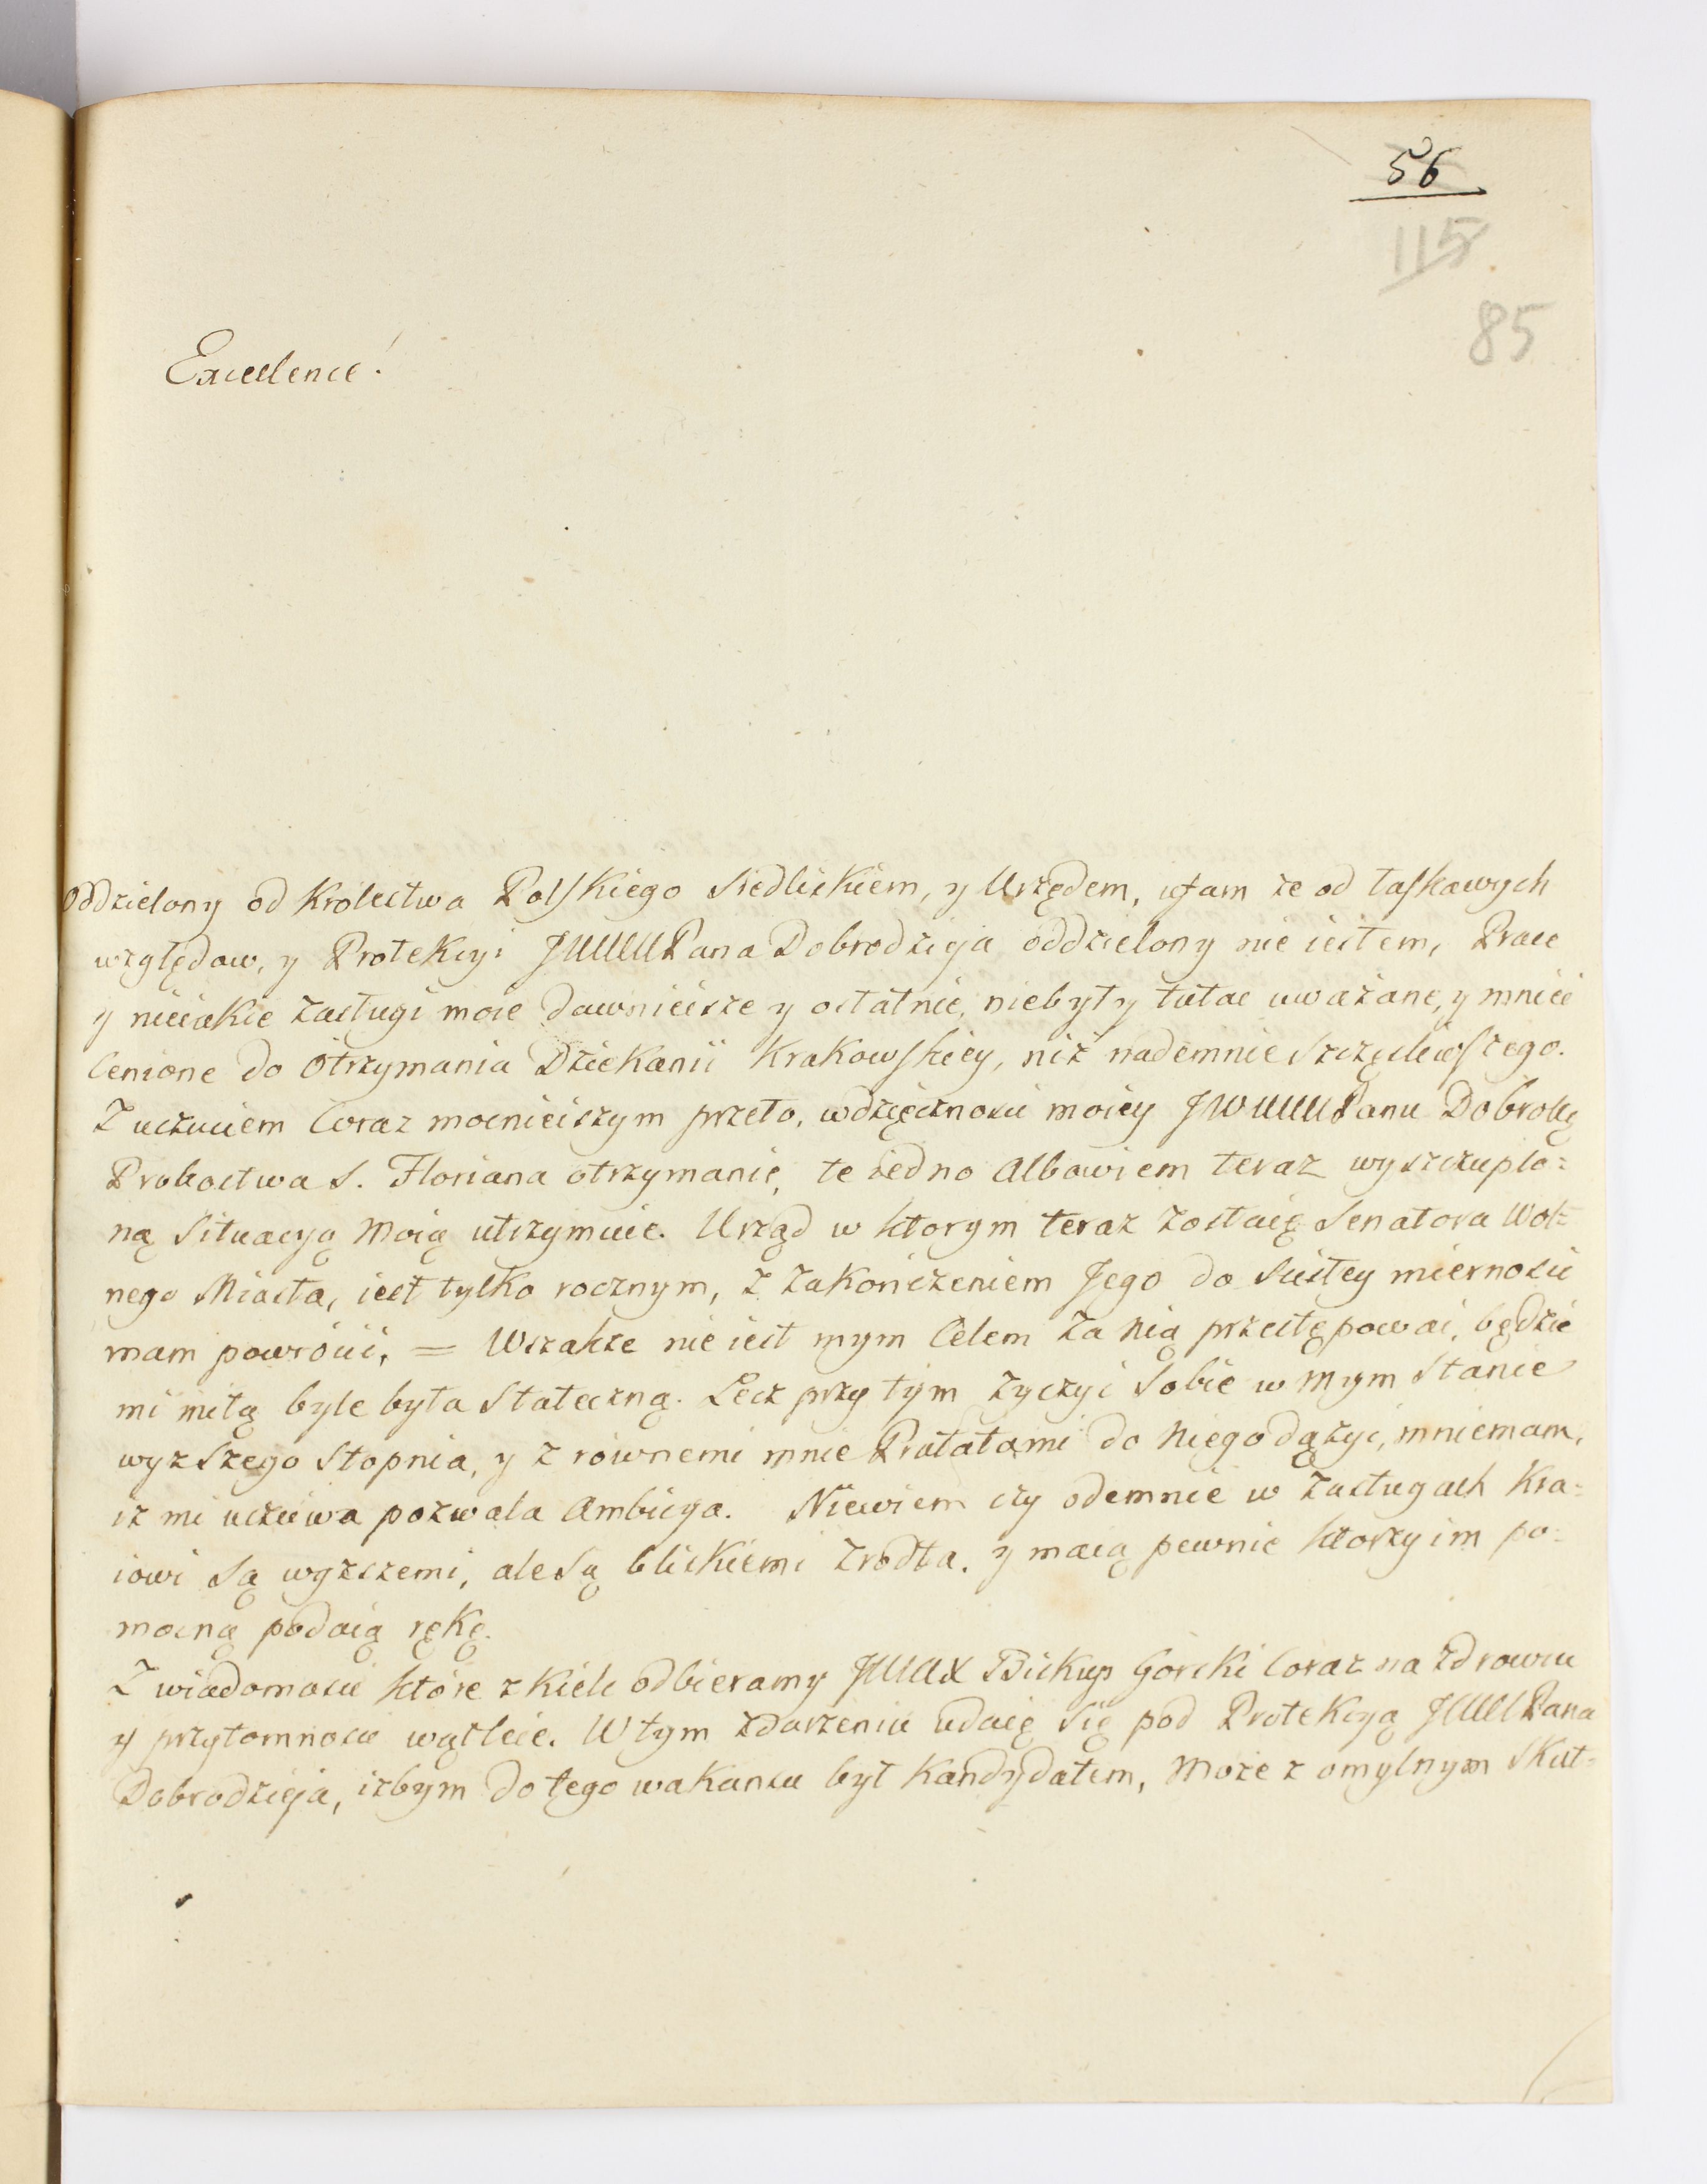 56
115
85
Excellence!
Oddzielony od Krolestwa Polskiego Siedliskiem, y Urzędem, ufam że od łaskawych
względow, y Protekcyi JWWWPana Dobrodzieja oddzielony nie iestem, Prace
y nieiakie zasługi moie dawnieisze y ostatnie, niebyły tutac uważane, y mniei
cenione do otrzymania Dziekanii Krakowskiey, niż nademnie szczęśliwszego.
Z uczuciem coraz mocnieiszym przeto, wdzięcznosci moiey JWWWPanu Dobrod.
Probostwa S. Floriana otrzymanie, te iedno Albowiem teraz wyszczuplo=
ną Situacyą Moią utrzymuie. Urząd w ktorym teraz zostaię Senatora Wol=
nego Miasta, iest tylko rocznym, z zakończeniem Jego do scisłey miernosci
mam powrócić, = Wszakże nie iest mym Celem za nią przestępować, będzie
mi miłą byle była Stateczną. Lecz przy tym życzyć Sobie w Mym Stanie
wyższego Stopnia, y z równemi mnie Prałatami do Niego dążyć, mniemam,
iż mi uczciwa pozwala Ambicya. Niewiem czy odemnie w zasługach Kra=
iowi są wyższemi, ale są bliskiemi zrodła, y maią pewnie ktorzy im po=
mocną podaią rękę.
Z wiadomosci które z Kielc odbieramy JWWX Biskup Górski coraz na zdrowiu
y przytomnosci wątleie. W tym zdarzeniu udaię się pod Protekcyą JWWPana
Dobrodzieja, iżbym do tego wakansu był Kandydatem, Może z omylnym Skut=